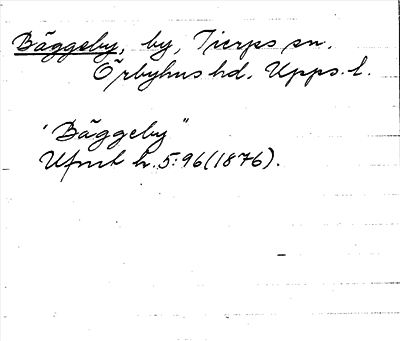 Bäggeby, by, Tierps sn.
Örbyhus hd, Upps. l.
"Bäggeby"
Ufmt h. 5:96 (1876).